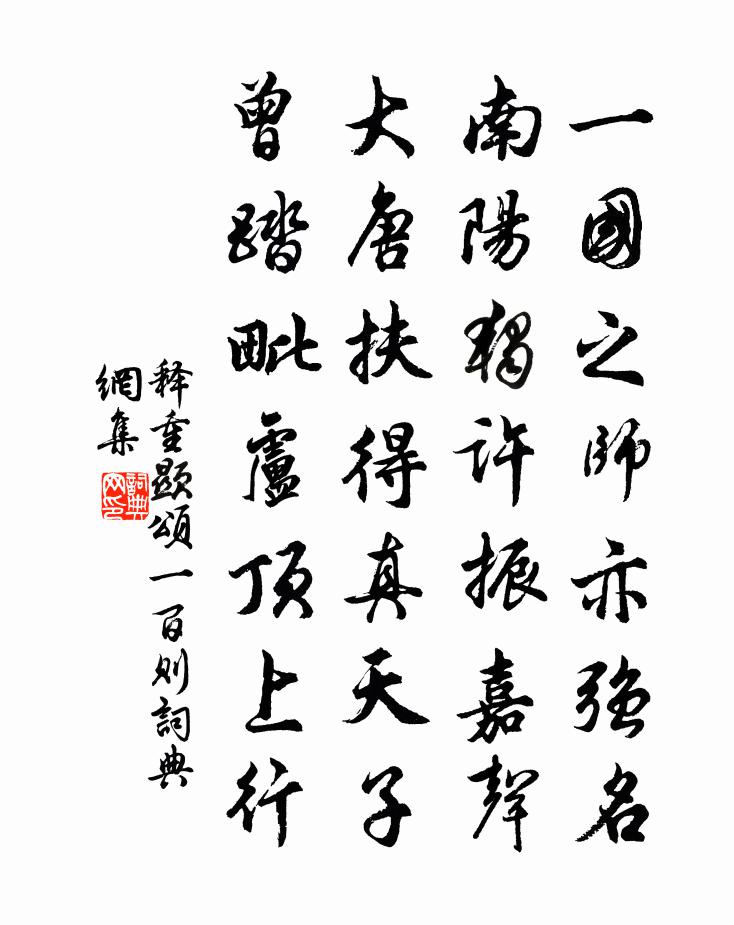 一國之師亦強名
南陽獨許振嘉聲
大唐扶得真天子
曾踏毗盧頂上行
释重顯頌一百则詞典
網集
詞典
网印